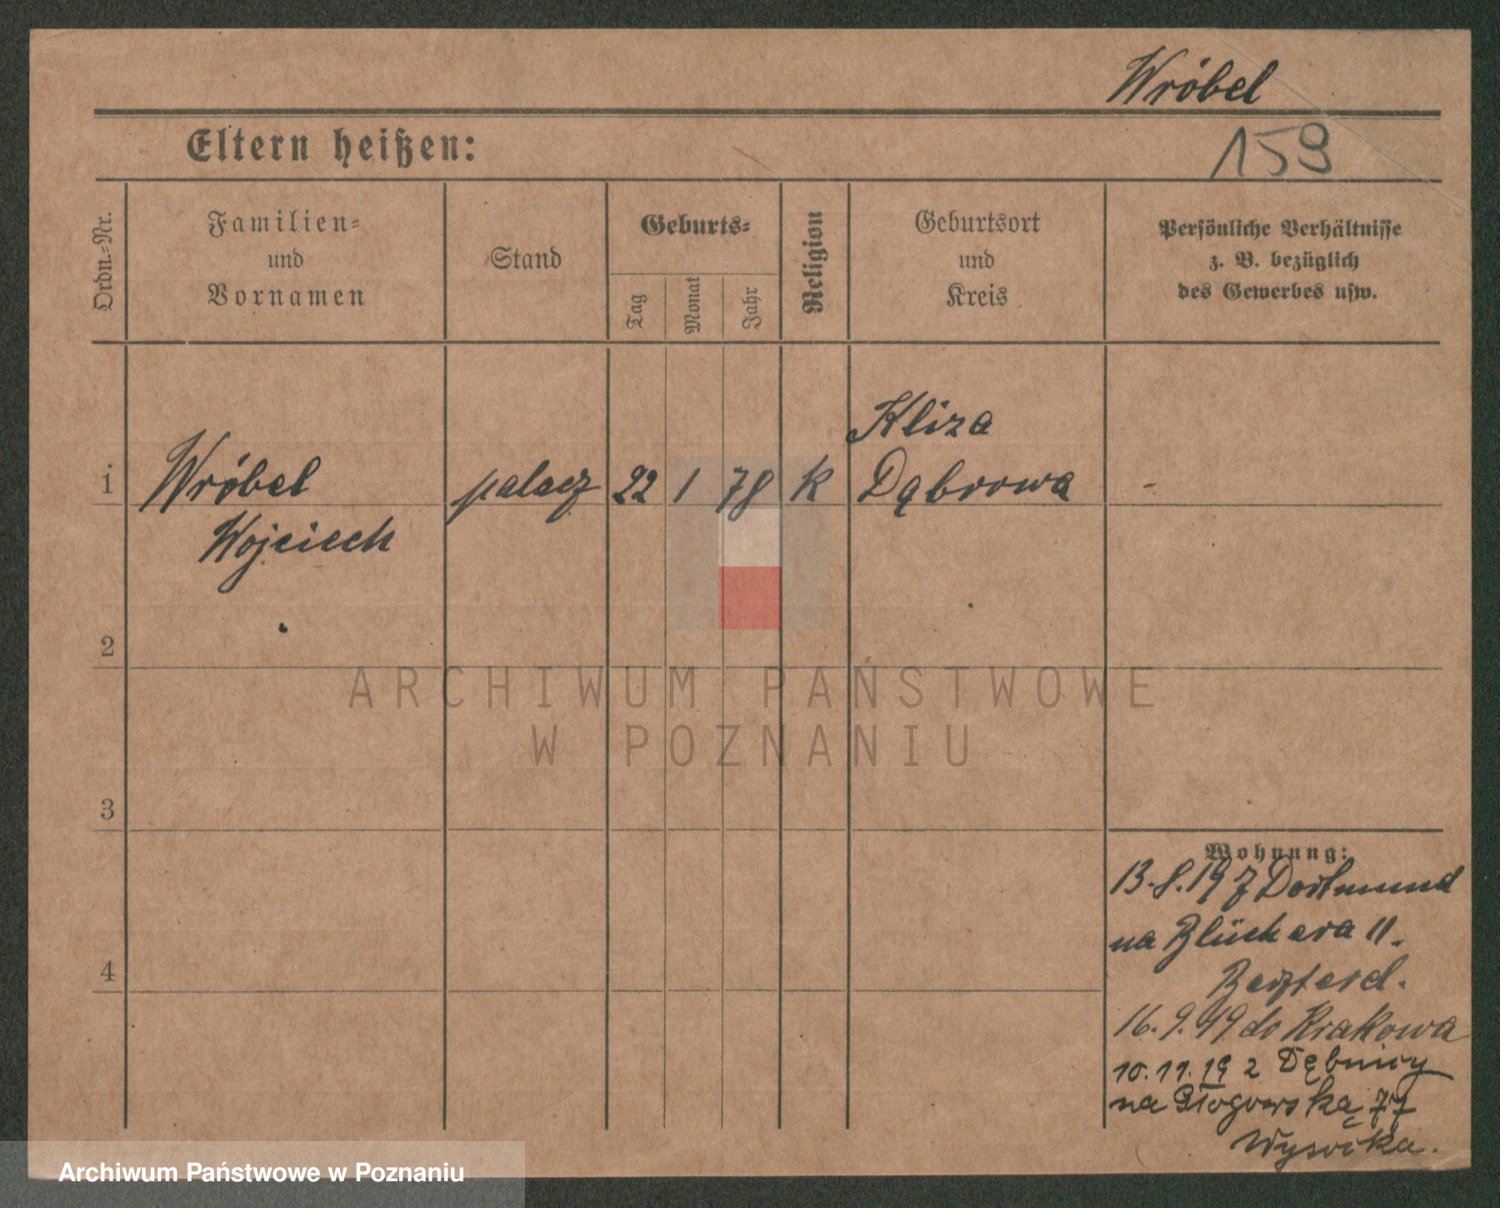 Wróbel
159
Eltern heißen:
Ordn.-Nr.
Familien-
und
Vornamen
Stand
Geburts-
Tag
Monat
Jahr
Religion
Geburtsort
und
Kreis
Persönliche Verhältnisse
z. B. bezüglich
des Gewerbes usw.
1
Wróbel
Wojciech
palacz
22
1
78
k
Kliza
Dąbrowa
-
2
3
4
Wohnung:
13.8.19 z Dortmund
na Blüchera 11.
16.9.19 do Krakowa
10.11.19 z Dębnicy
na Głogowską 77
Wysocka.
ARCHIWUM PAŃSTWOWE
W POZNANIU
Archiwum Państwowe w Poznaniu